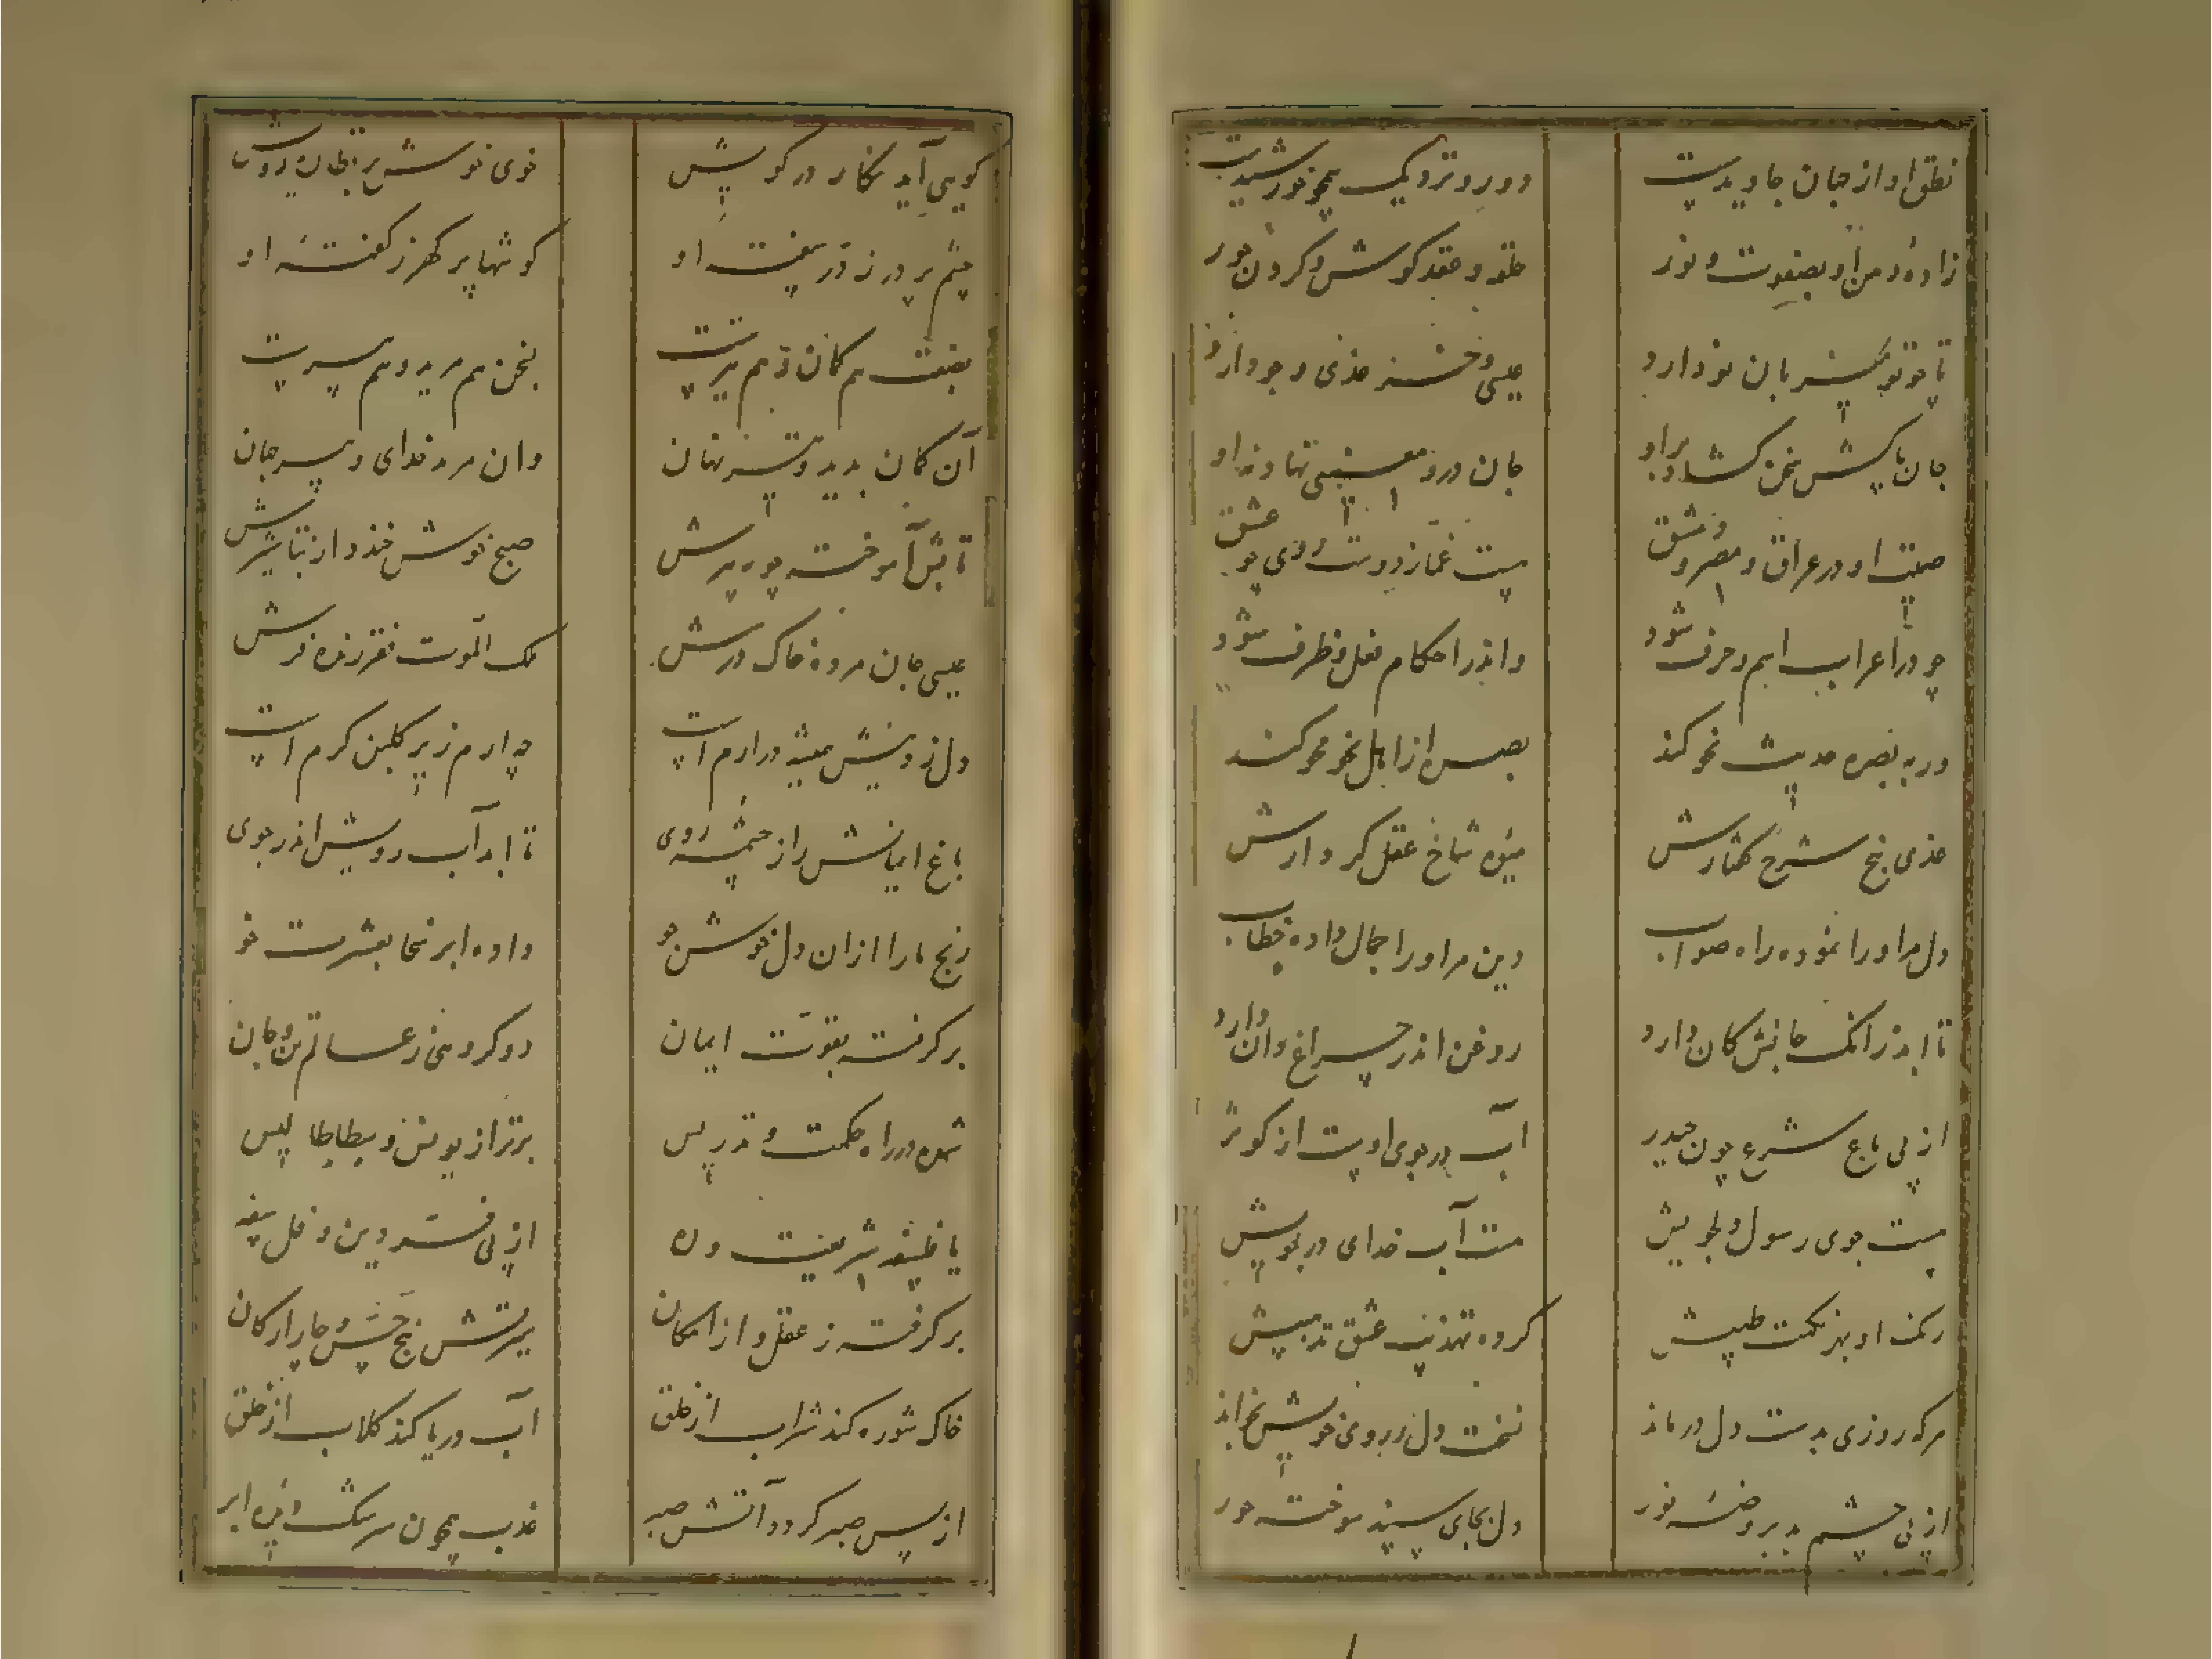 نطق او از جهان جاویدست دور و نزدیک همچو خورشیدست
زاده ذهن او بصفوت و نور حلقه و عقد گوش و گردن حور
تا خوتو سر بان نو دارد عیسی و خر غذی و جو دارد
جان پاکش سخن گشاد برو جان درو معنیی نهاد نه او
صیت او در عراق و مصر و دمشق هست غماز دوست روی چو عشق
چو در اعراب اسم و حرف شود واندر احکام فعل و ظرف شود
ور به بصره حدیث نحو کند بصره از اهل نحو محو کند
غذی بیخ شرع گفتارش میوه شاخ عقل کردارش
دل مر او را نموده راه صواب دین مر او را جمال داده خطاب
تا ابد زانک جانش کان دارد روغن اندر چراغ دان دارد
از پی باغ شرع چون حیدر آب در جوی اوست از کوثر
هست جوی رسول دلجویش هست آب خدای در جویش
رکن او بهر حکمت طیبش کرده تهذیب عشق تهذیبش
هرکه روزی بدست دل درماند نسخت دل ز روی خوبش خواند
از پی چشم بد بر روضه نور دل بجای سپند سوخته حور
گویی آید نگار در گوشش خوی خوش بر بقای پر دوش
چشم پر در ز در سفته او گوشها پر گهر ز گفته او
بصفت هم کمان و هم تیرست بسخن هم مرید و هم پیرست
آن کمان پدید و تیر نهان وان مرید خدای و پیر جهان
تابش آموخته چو بر پدرش صبح خوش خندد از تباشیرش
عیسی جان مرده خاک درش ملک الموت فقر زنده فرش
دل ز دینش همیشه در ارم است چه ارم زیر گلبن کرم است
باغ ایمانش را ز چشمه روی تا ابد آب رویش اندر جوی
رنج ما را از آن دل خوش خو داده ابر سخا بعشرت خو
برگرفته بقوت ایمان دو گروهی ز عالم تن و جان
شده در راه حکمت و تدریس برتر از یونس و بطاطالیس
با خلیفه شریعت و ره از پی فر دین و فعل سفه
برگرفته ز عقل و از امکان سیرتش پنج حس و چار ارکان
خاک شوره کند شراب از خلق آب دریا کند گلاب از خلق
از پس صبر کردد آتش صبر عذب همچون سرشک دیده ابر